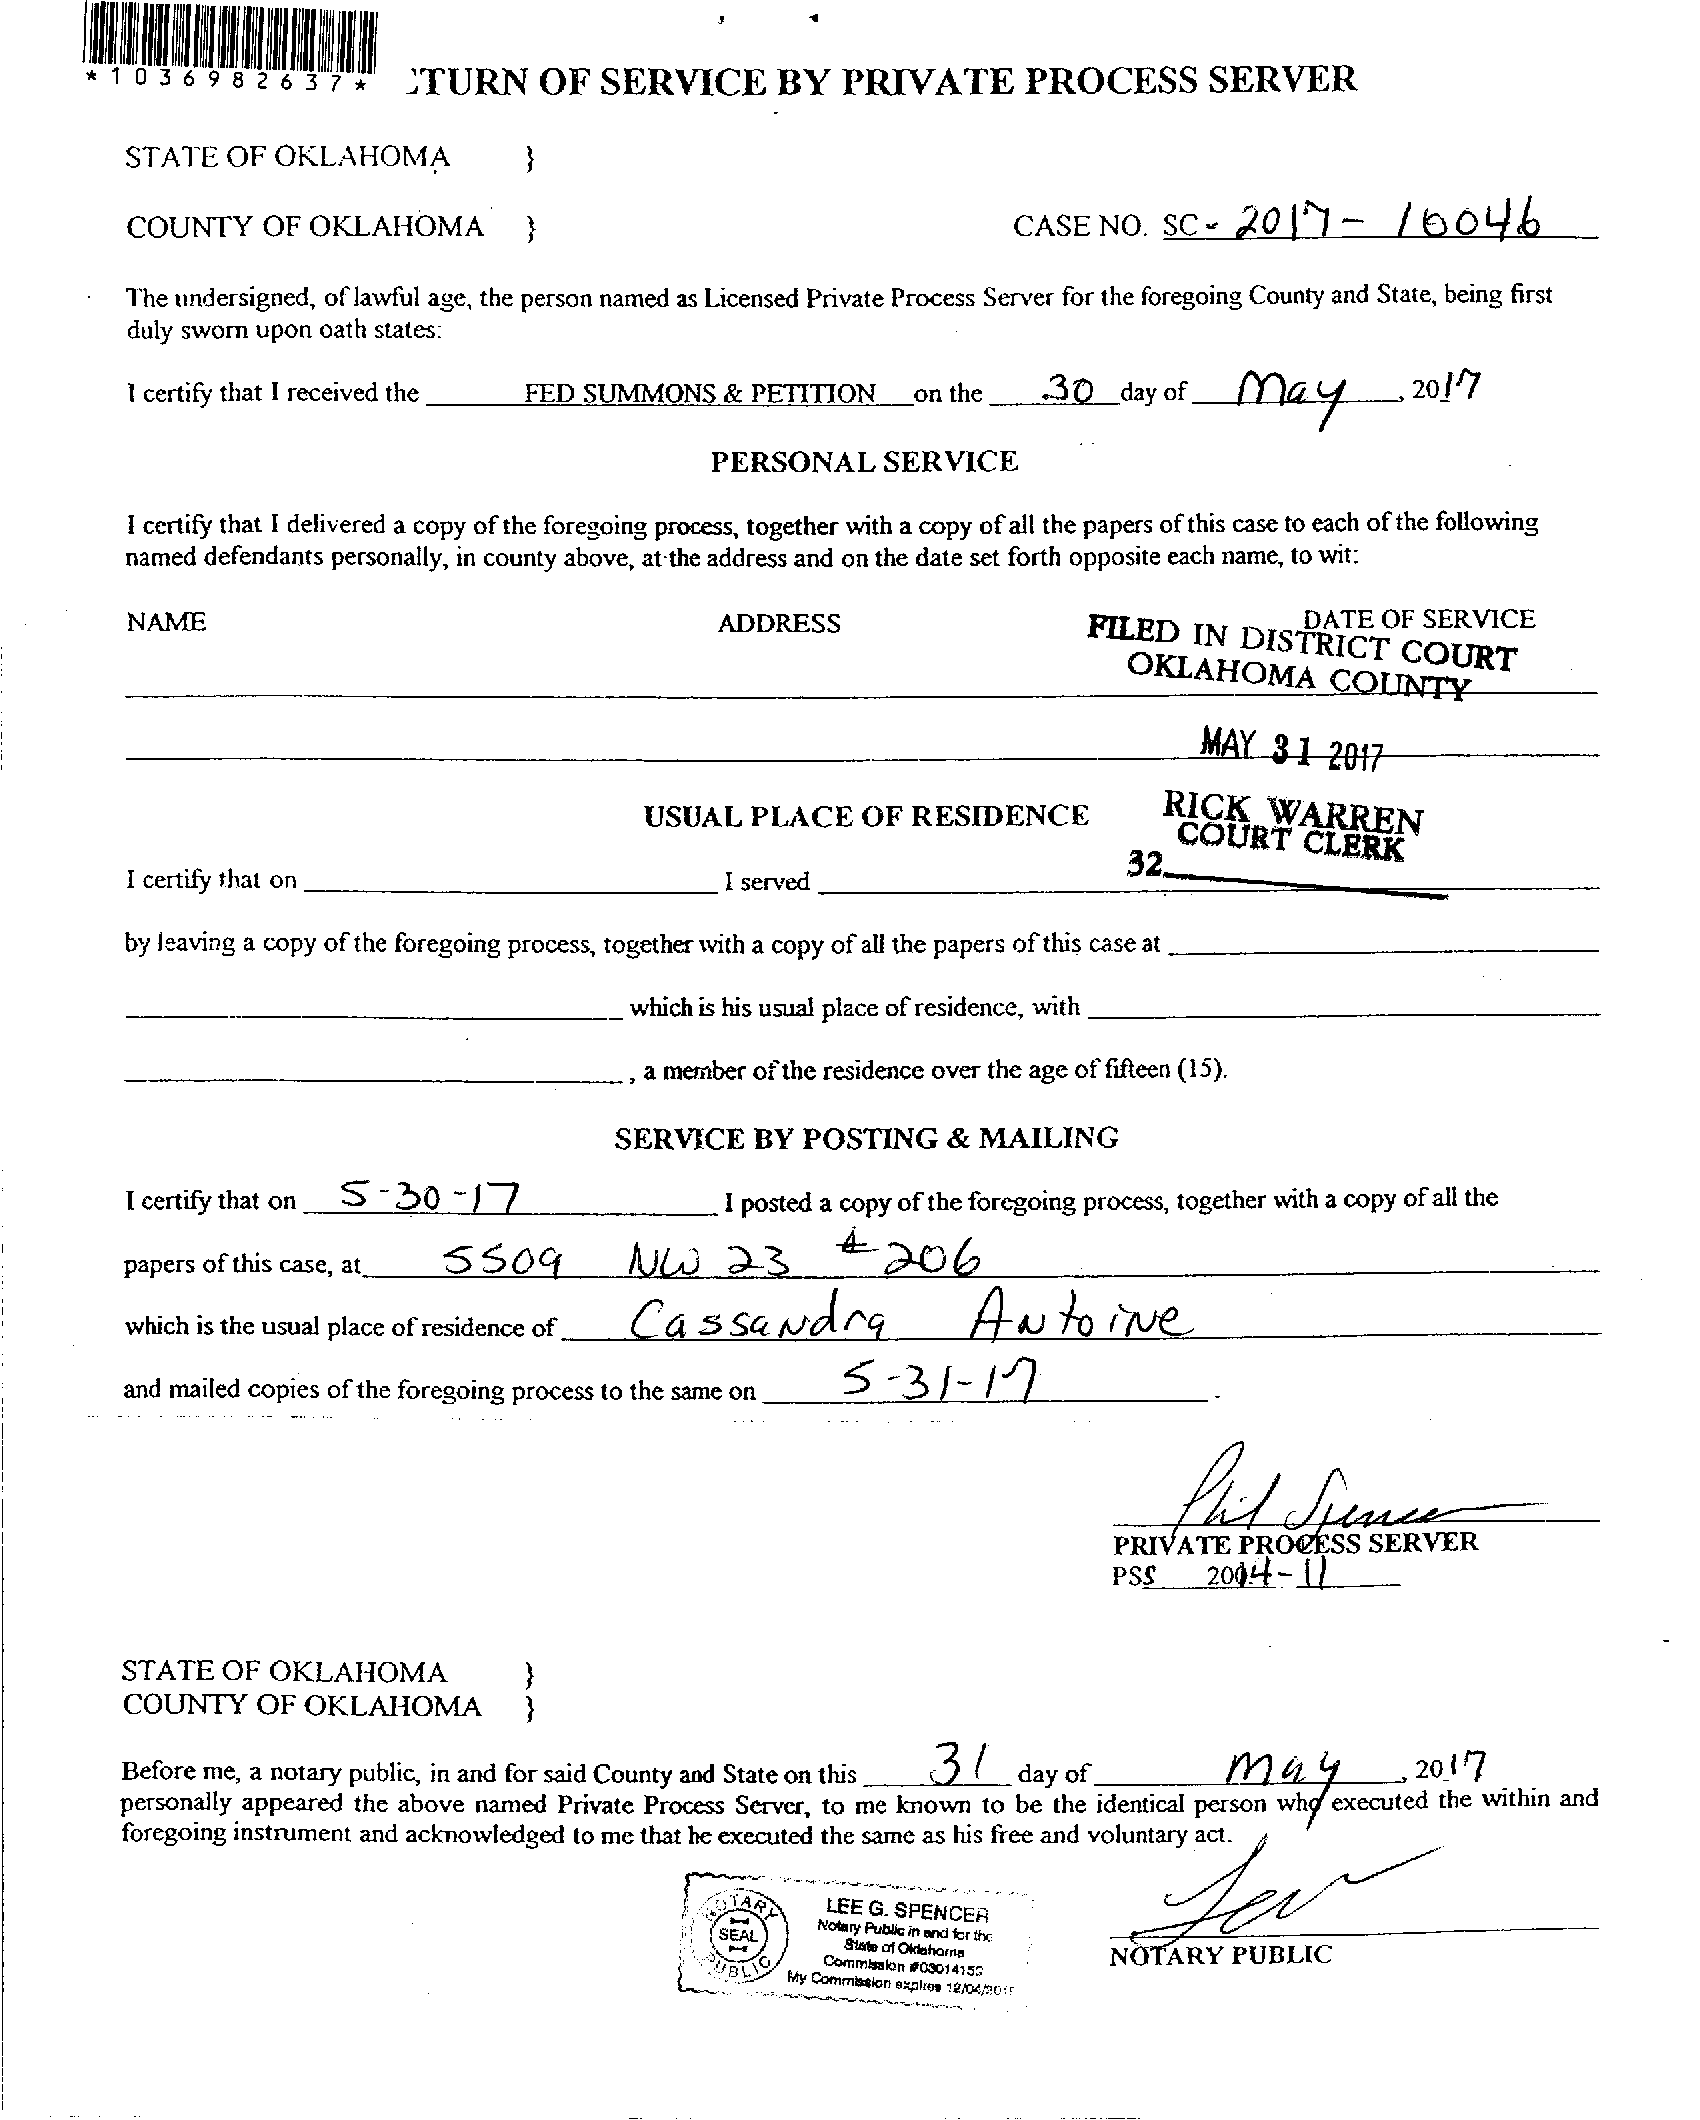 *1036982637*
:TURN OF SERVICE BY PRIVATE PROCESS SERVER
STATE OF OKLAHOMA }
COUNTY OF OKLAHOMA } CASE NO. SC - 2017 - 10046
The undersigned, of lawful age, the person named as Licensed Private Process Server for the foregoing County and State, being first
duly sworn upon oath states:
I certify that I received the FED SUMMONS & PETITION on the 30 day of May, 2017
PERSONAL SERVICE
I certify that I delivered a copy of the foregoing process, together with a copy of all the papers of this case to each of the following
named defendants personally, in county above, at the address and on the date set forth opposite each name, to wit:
NAME ADDRESS DATE OF SERVICE
FILED IN DISTRICT COURT
OKLAHOMA COUNTY
MAY 31 2017
RICK WARREN
COURT CLERK
32
USUAL PLACE OF RESIDENCE
I certify that on I served
by leaving a copy of the foregoing process, together with a copy of all the papers of this case at
which is his usual place of residence, with
, a member of the residence over the age of fifteen (15).
SERVICE BY POSTING & MAILING
I certify that on 5-30-17 I posted a copy of the foregoing process, together with a copy of all the
papers of this case, at 5509 NW 23 # 206
which is the usual place of residence of Cassandra Antoine
and mailed copies of the foregoing process to the same on 5-31-17.
Phil Spencer
PRIVATE PROCESS SERVER
PSS 2004-11
STATE OF OKLAHOMA }
COUNTY OF OKLAHOMA }
Before me, a notary public, in and for said County and State on this 31 day of May, 2017
personally appeared the above named Private Process Server, to me known to be the identical person who executed the within and
foregoing instrument and acknowledged to me that he executed the same as his free and voluntary act.
NOTARY PUBLIC
SEAL
LEE G. SPENCER
Notary Public in and for the
State of Oklahoma
Commission
My Commission expires
NOTARY PUBLIC